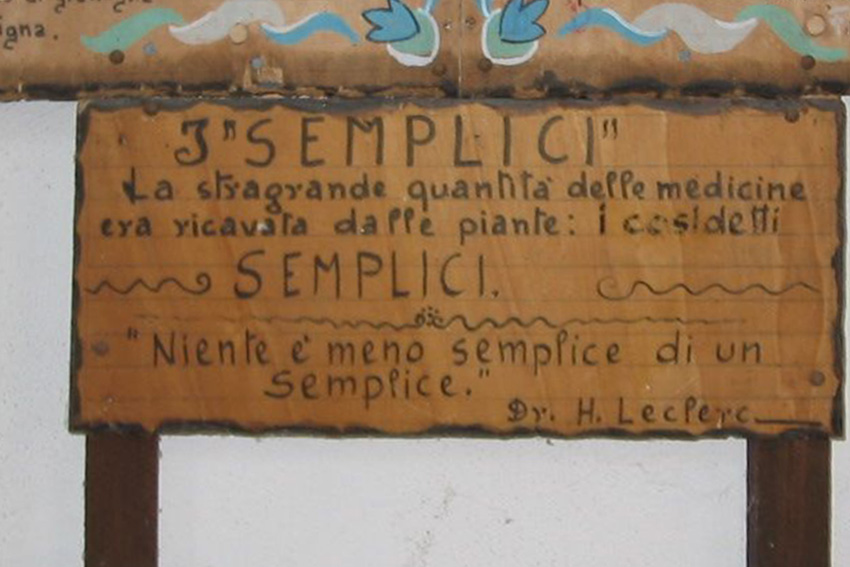 igna.
I "SEMPLICI"
La stragrande quantità delle medicine
era ricavata dalle piante: i cosidetti
SEMPLICI.
"Niente e' meno semplice di un
Semplice."
Dr. H. Leclerc